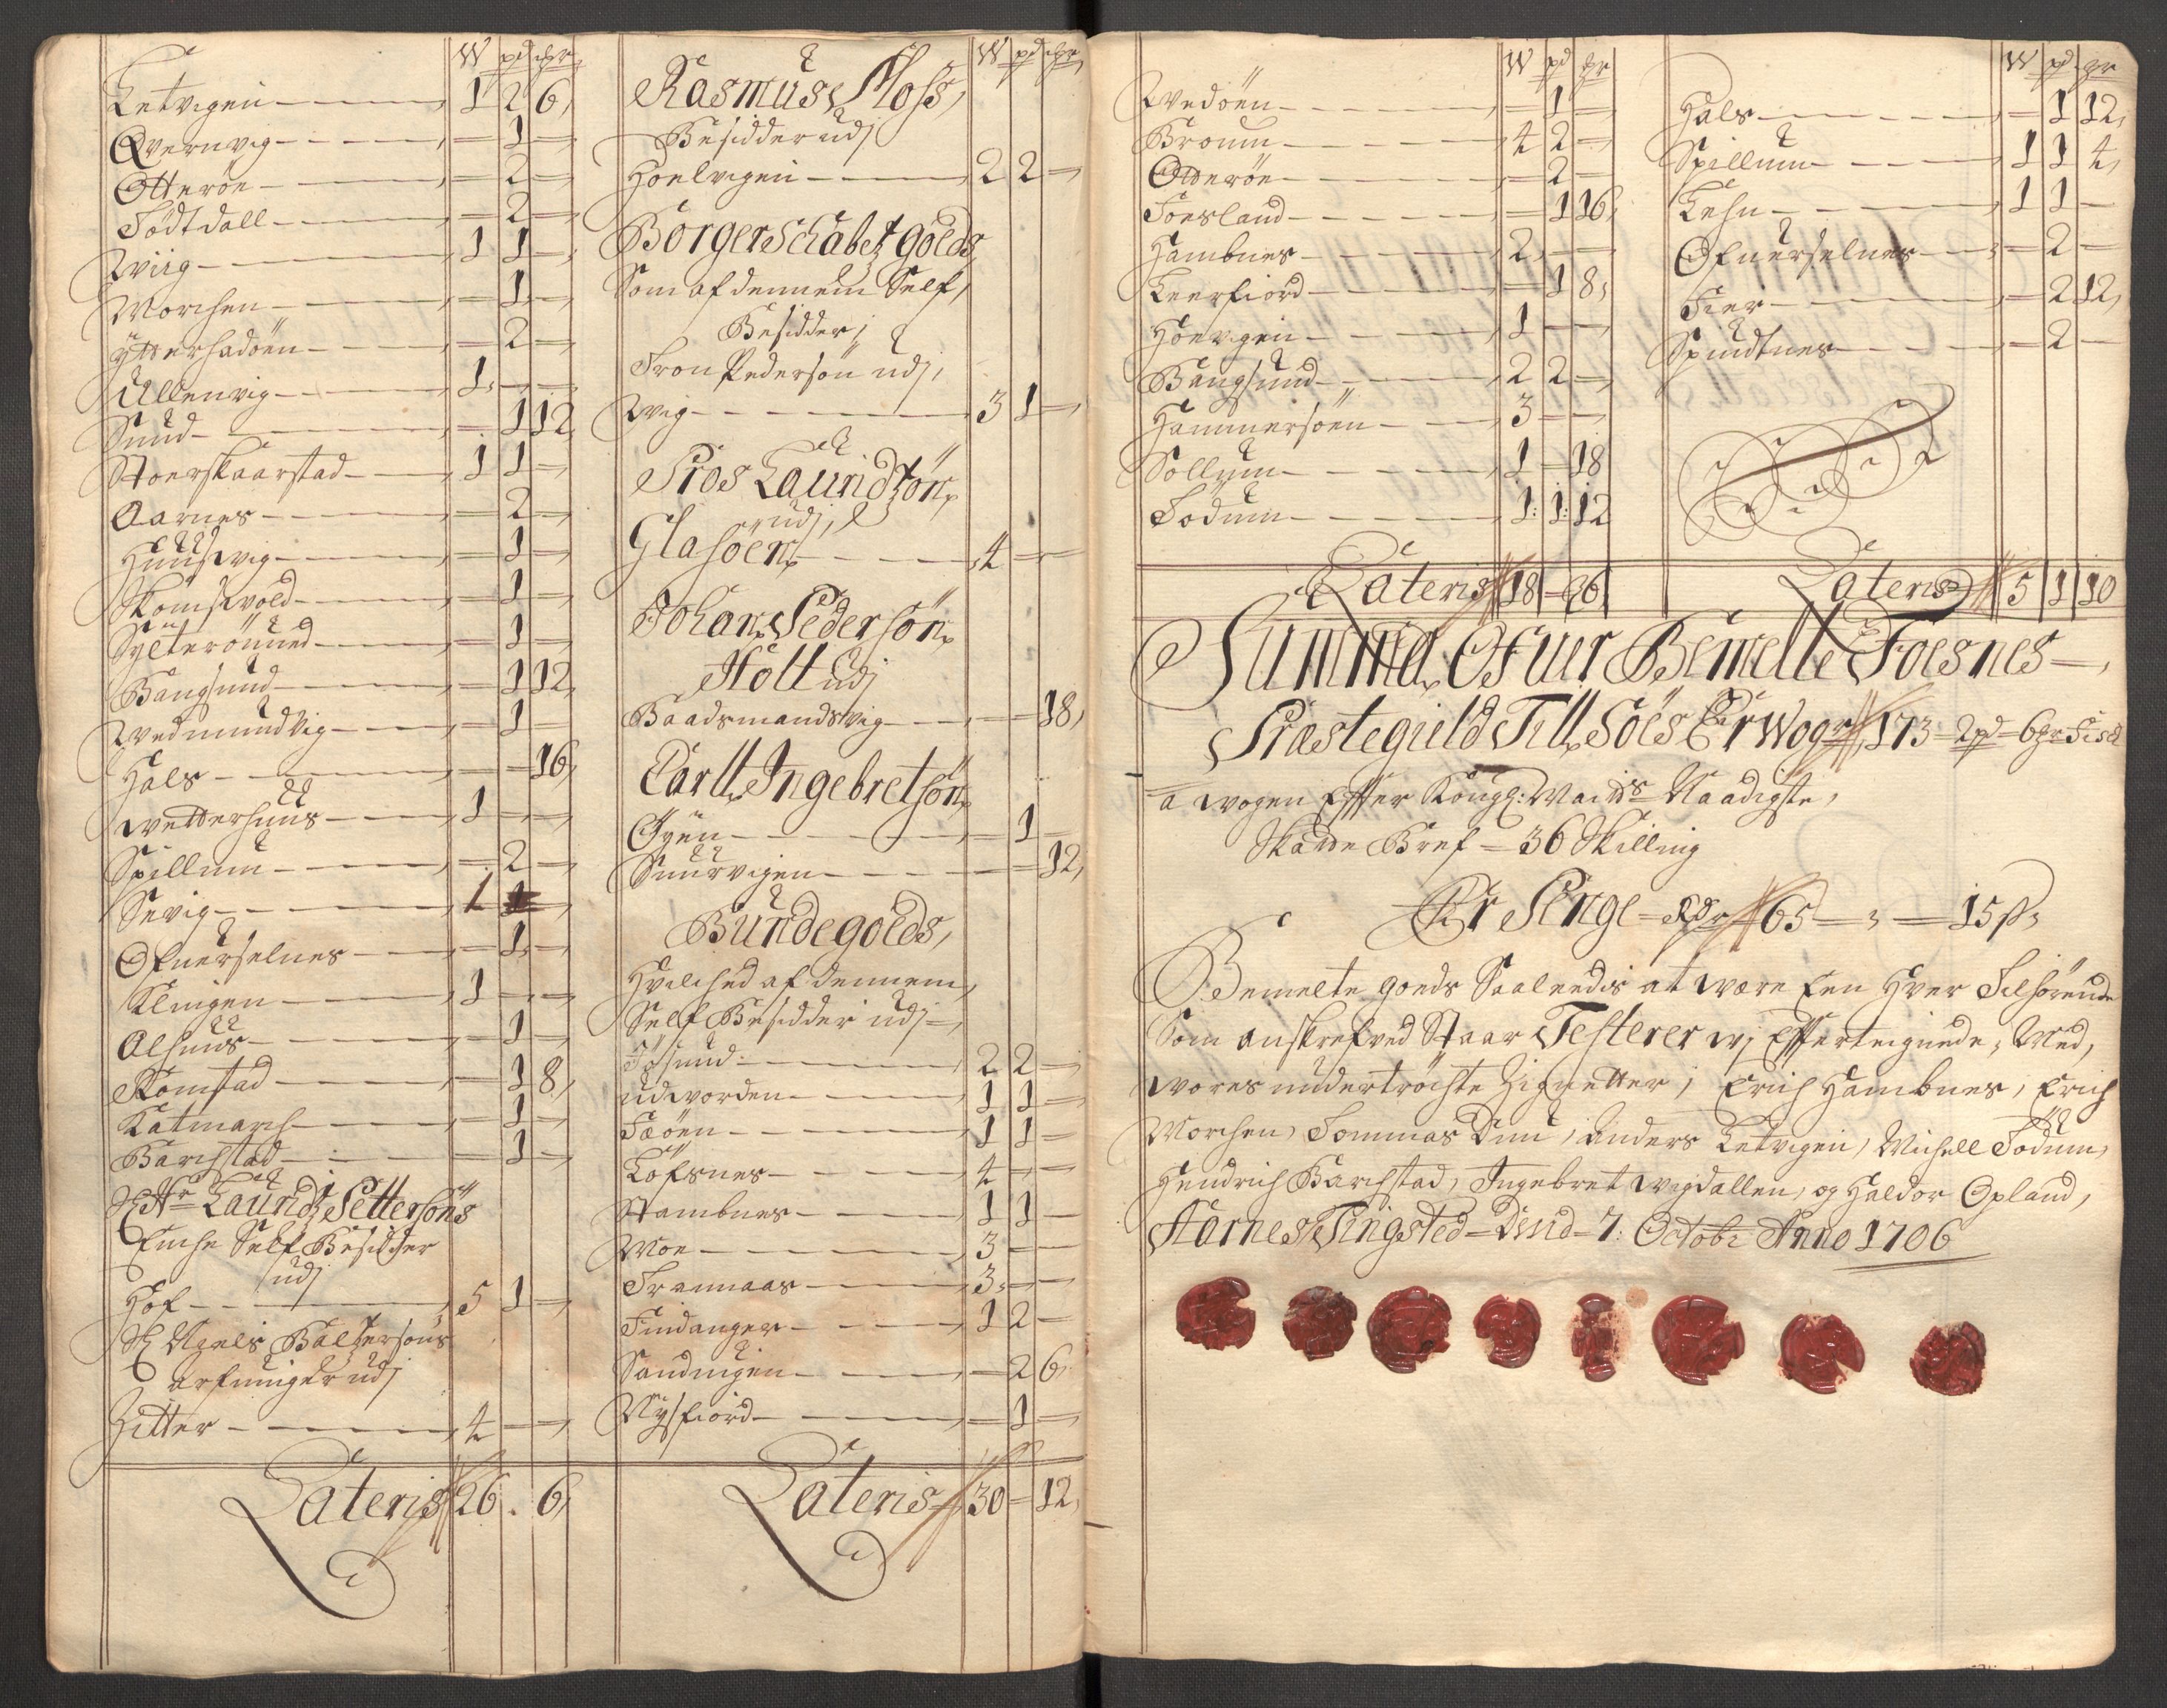 W pd gr
Ketvigen 1 2 6
Qvernvig — 1 —
Otterön — 2 —
Födtdall — 2 —
Wiig 1 1 —
Morchen — 1 —
Ytterhadöen — 2 —
Ullenvig 1 — —
Sund — 1 12
Stoerskaarstad 1 1 —
Aarnes — 2 —
Huusvig — 1 —
Skomsvold — 1 —
Sylterönned — 1 —
Bangsund — 1 12
Wedmundvig — 1 —
Hals — — 16
Wetterhuus 1 — —
Spillum — 2 —
Sevig 1 1 —
Ofuerselnes — 1 —
Klingen 1 — —
Alhuus — 1 —
Romstad — 1 8
Katmarch — 1 —
Barchstad — 1 —
Sl Hr Lauridz Pettersöns
Enche Self Besidder
udj
Hof 5 1 —
Sl Niels Baltzersöns
Arfuinger udj
Zitter 4 — —
Lateris 26 . 6
W pd gr
Rasmus Moss
Besidder udj
Hoelvigen 2 2 —
Borgerschabetz goeds
Som af dennem Self
Besidder
Tron Pedersön udj
Wiig 3 1 —
Pros Lauridzön
udj
Glasöen 4 — —
Johan Pedersön
Holt udj
Baadsmandsvig — — 18
Carll Ingebretsön
Öyen — 1 —
Suurvigen — — 12
Bunde goeds
Hvilched af dennem
Self Besidder udj
Sund 2 2 —
udvorden 1 1 —
Fæöen 1 1 —
Lofsnes 4 — —
Stambnes 1 1 —
Moe 3 — —
Trannaas 3 — —
Findanger 1 2 —
Sandvigen — 2 6
Nysfiord — 1 —
Lateris 30 — 12
W pd gr
Wedöen — 1 —
Broum 4 2 —
Otterön — 2 —
Foesland — 1 16
Hambnes 2 — —
Leerfiord — 1 8
Hoevigen 1 — —
Bangsund 2 2 —
Hammersöen 3 — —
Sollum 1 — 18
Födum 1 1 12
Lateris 18 — 6
W pd gr
Hals — 1 12
Spillum 1 1 4
Lehn 1 1 —
Ofuerselnes — 2 —
Tier — 2 12
Spindtnes — 2 —
Lateris 5 1 10
Summa Ofuer Bemelte Foesnes
Præstegield Till Söes Er Wogr 173 — 2 pd — 6 gr Fisch
a wogen Effter Kongl: Maidts Naadigste
Skatte Bref = 36 Skilling
Er Penge = Rdr 65 — 3 — 15 ß
Bemelte goeds Saaledis at være Een Hver Tilhörende
Som anskrefved Staar Testerer vj Effterteignede, Med
Wores undertröchte Zignetter; Erich Hambnes, Erich
Morchen, Tommas Duu, Anders Ketvigen, Michell Födum,
Hendrich Barchstad, Ingebret Wegdallen, og Haldor Opland,
Aarnes Tingsted — Dend 7: Octobr Anno 1706